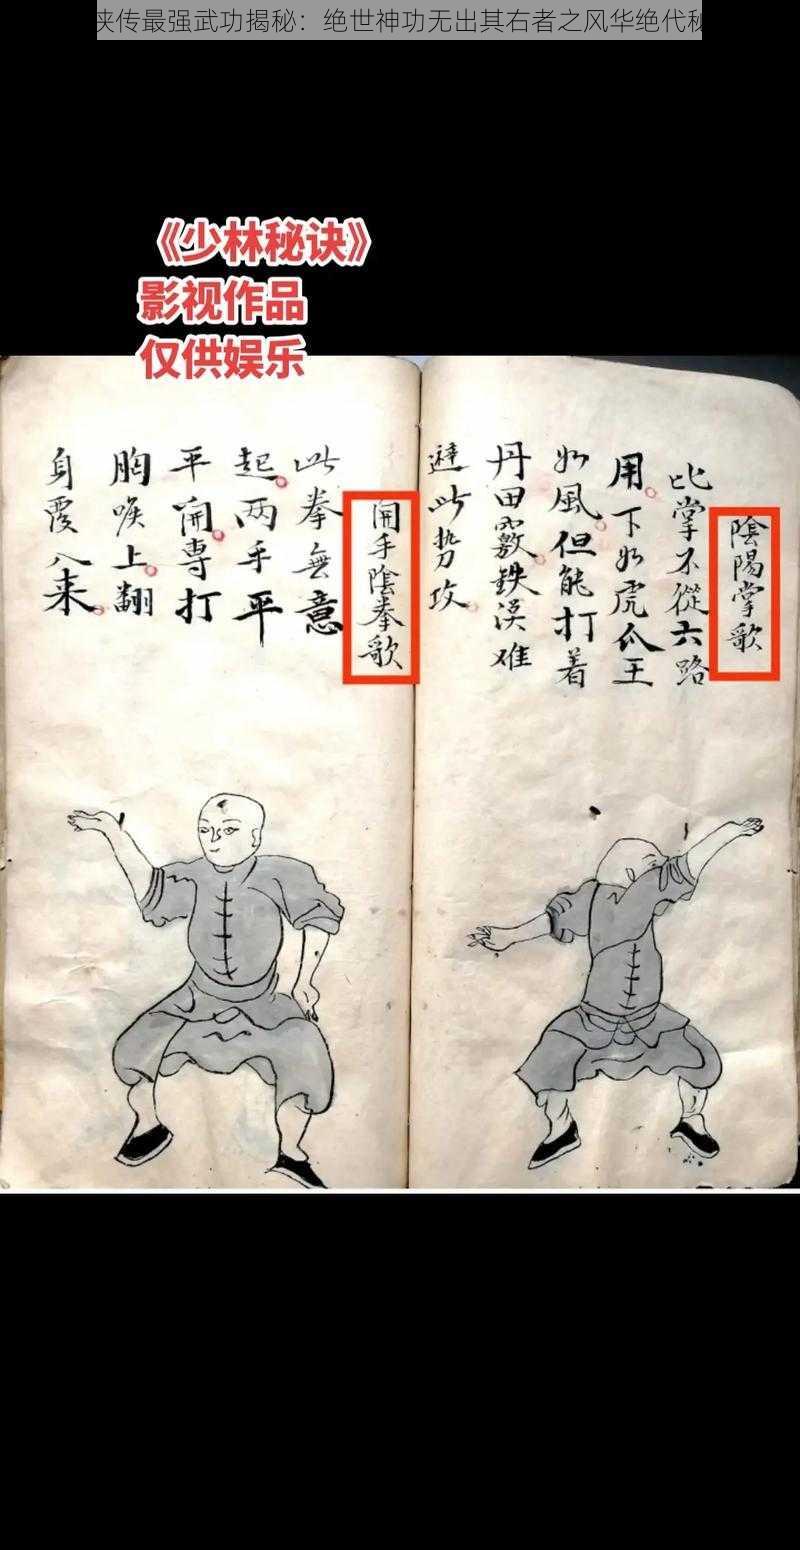 侠传最强武功揭秘：绝世神功无出其右者之风华绝代秘
《少林秘诀》
影视作品
仅供娱乐
陰陽掌歌
此掌不從六路
用下如虎爪王
如風但能打着
丹田竅鉄漢难
避此势攻
開手陰拳歌
此拳無意
起两手平
平開専打
胸喉上翻
身覆入来